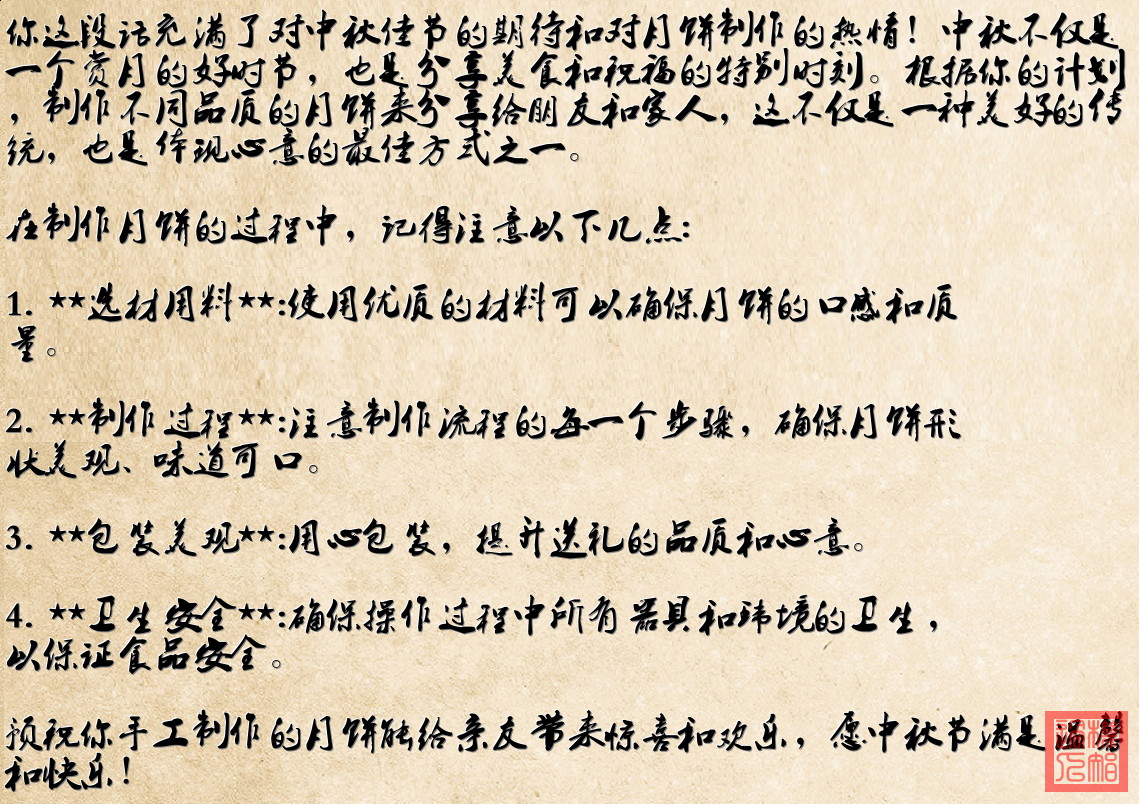 你这段话充满了对中秋佳节的期待和对月饼制作的热情！中秋不仅是
一个赏月的好时节，也是分享美食和祝福的特别时刻。根据你的计划
，制作不同品质的月饼来分享给朋友和家人，这不仅是一种美好的传
统，也是体现心意的最佳方式之一。
在制作月饼的过程中，记得注意以下几点：
1. **选材用料**:使用优质的材料可以确保月饼的口感和质
量。
2. **制作过程**:注意制作流程的每一个步骤，确保月饼形
状美观、味道可口。
3. **包装美观**:用心包装，提升送礼的品质和心意。
4. **卫生安全**:确保操作过程中所有器具和环境的卫生，
以保证食品安全。
预祝你手工制作的月饼能给亲友带来惊喜和欢乐，愿中秋节满是温馨
和快乐！